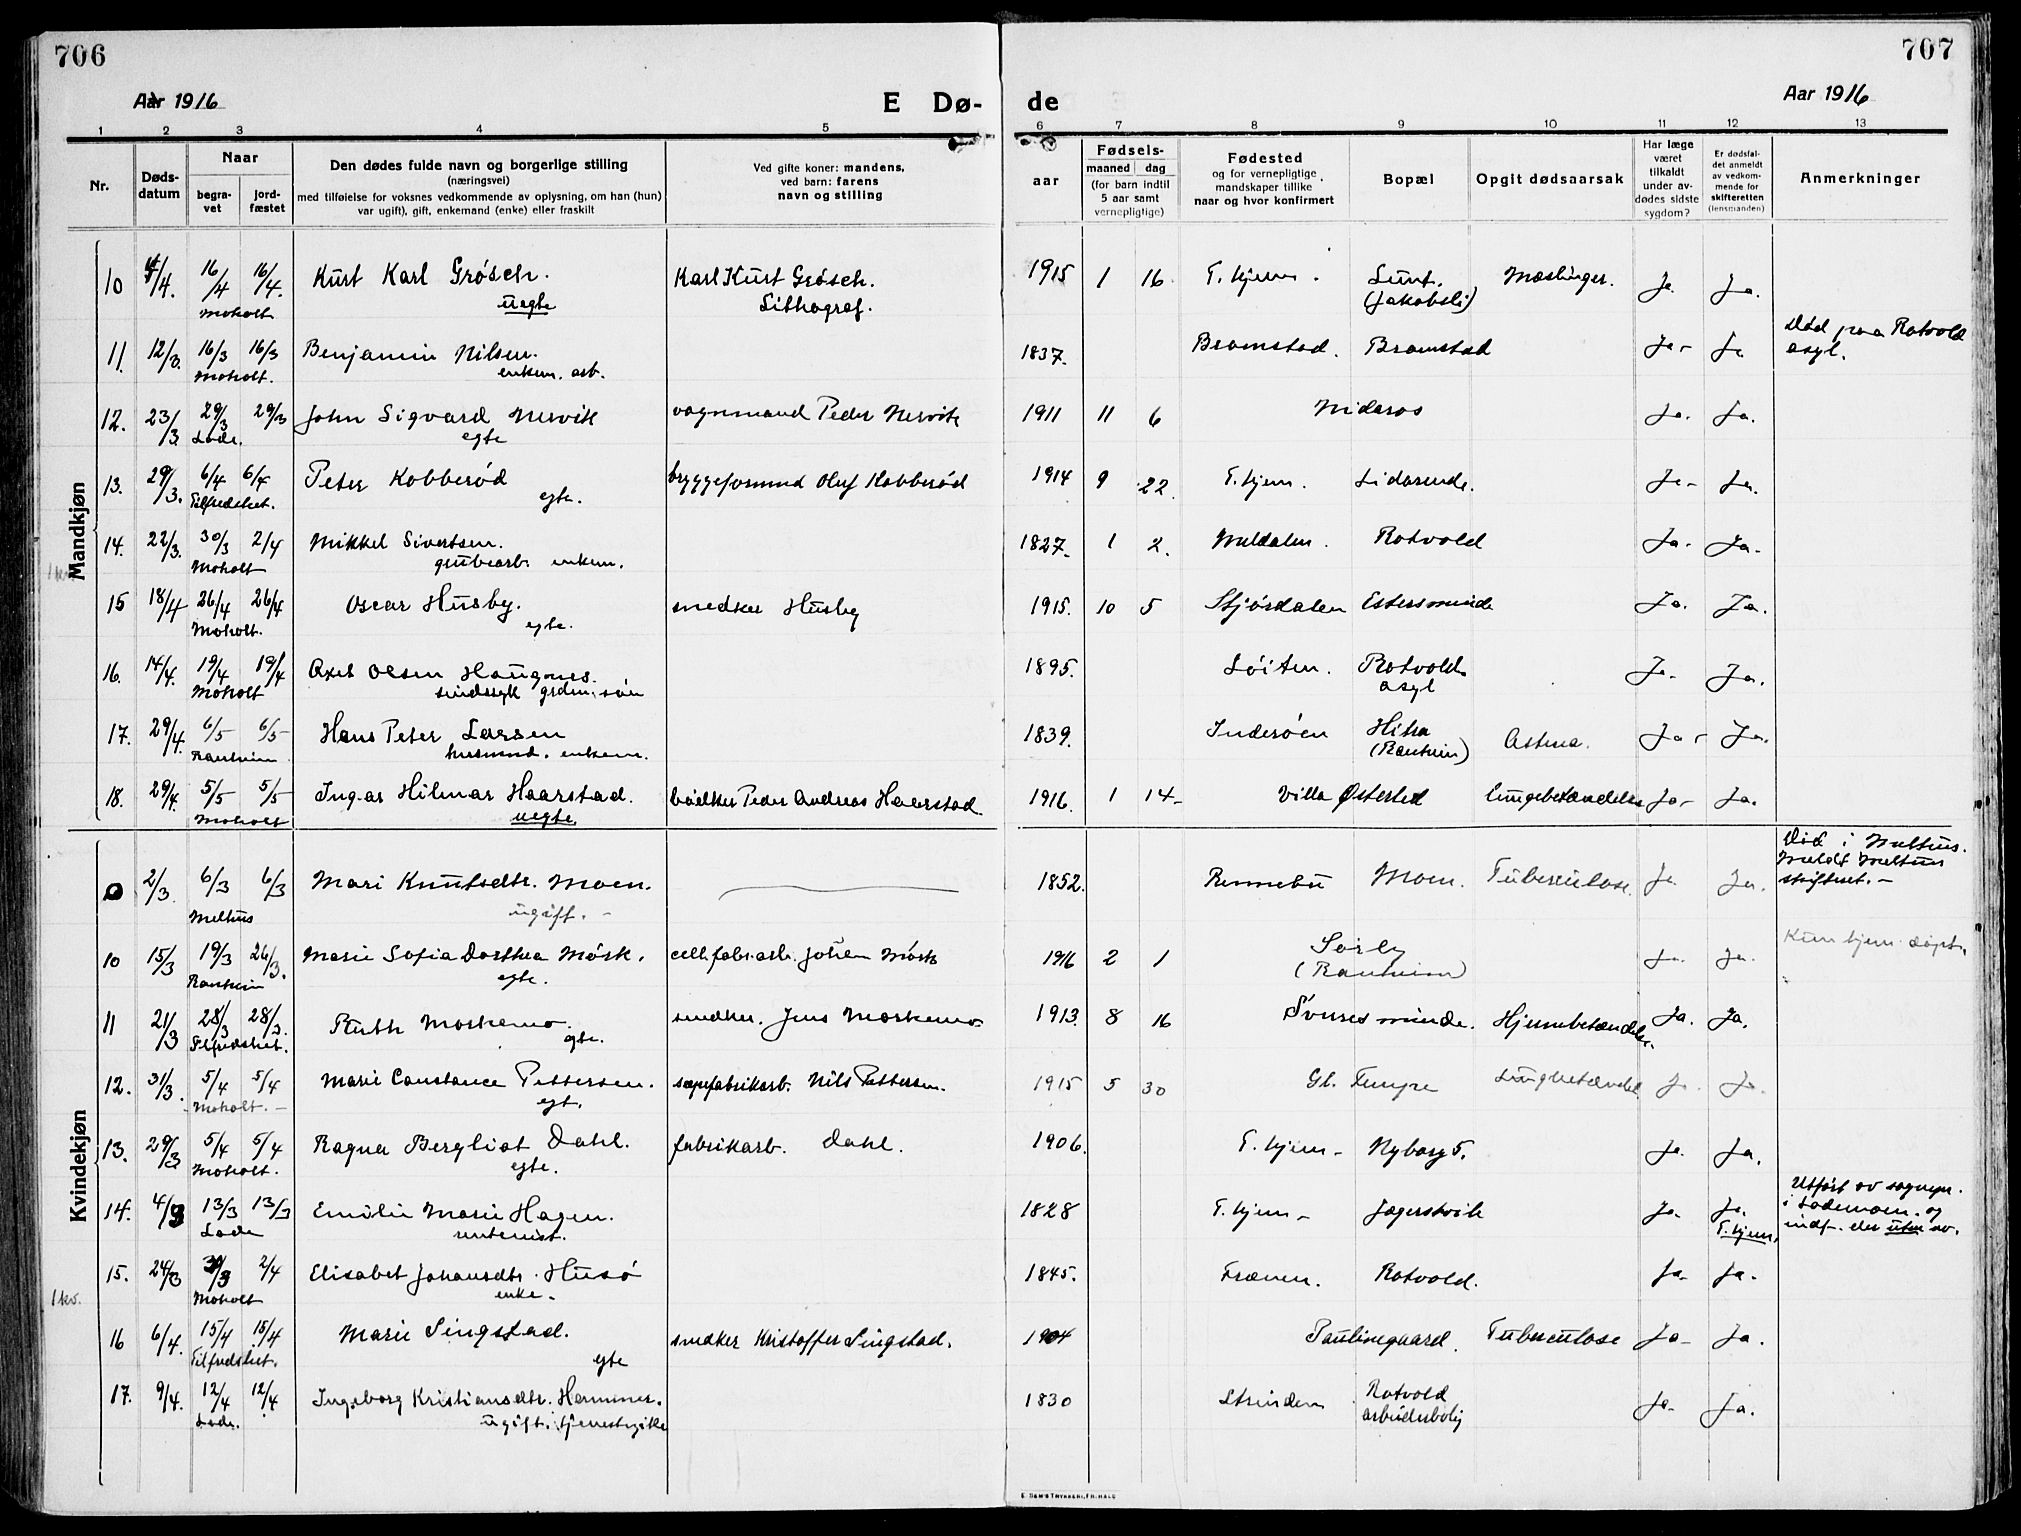 706
707
Aar 1916
E Dø-
de
Aar 1916
1 2 3 4 5 6 7 8 9 10 11 12 13
Nr.
Døds-
datum
Naar
begra-
vet
jord-
fæstet
Den dødes fulde navn og borgerlige stilling
(næringsvei)
med tilføielse for voksnes vedkommende av oplysning, om han (hun)
var ugift), gift, enkemand (enke) eller fraskilt
Ved gifte koner: mandens,
ved barn: farens
navn og stilling
aar
Fødsels-
maaned dag
(for barn indtil
5 aar samt
vernepligtige)
Fødested
og for vernepligtige
mandskaper tillike
naar og hvor konfirmert
Bopæl
Opgit dødsaarsak
Har læge
været
tilkaldt
under av-
dødes sidste
sygdom?
Er dødsfal-
det anmeldt
av vedkom-
mende for
skifteretten
(lensmanden)
Anmerkninger
Mandkjøn
10 4/4. 16/4 16/4. Kurt Karl Grøsch. Karl Kurt Grøsch. 1915 1 16 T.hjem. Mæslinger. Ja. Ja.
Moholt uegte Lithograf. (Jakobsli)
11. 12/3. 16/3 16/3 Benjamin Nilsen. 1837. Bromstad. Bromstad Ja- Ja Død paa Rotvold
Moholt. enkem. arb. asyl.
12. 23/3. 29/3 29/3 John Sigvard Nervik vognmand Peder Nervik 1911 11 6 Nidaros Ja. Ja.
Lade. egte
13. 29/3. 6/4 6/4 Peter Kobberød byggeformand Oluf Kobberød 1914 9 22. T.hjem. Lidarende. Ja- Ja.
Tilfredshet. egte.
14. 22/3. 30/3 2/4 Mikkel Sivertsen. 1827. 1 2. Meldalen. Rotvold Ja- Ja.
Moholt grubearb. enkem.
15 18/4 26/4 26/4 Oscar Husby. snedker Husby 1915. 10 5 Stjørdalen Estersminde Ja. Ja.
Moholt. egte.
16. 14/4. 19/4 19/4 Axel Olsen Haugnes. 1895. Løiten. Rotvold Ja- Ja.
Moholt sindssyk grdm. søn asyl
17. 29/4. 6/5 6/5 Hans Peter Larsen 1839. Inderøen Hitra Astma. Ja- Ja.
Ranheim husmand. enkem. (Ranheim)
18. 29/4. 5/5 5/5 Ingvar Hilmar Haarstad. bødker Peder Andreas Haarstad 1916. 1 14- Villa Østerled lungebetændelse Ja- Ja.
Moholt uegte
Kvindekjøn
2/3. 6/3 6/3 Mari Knutsdtr. Moen. 1852. Rennebu Moen. Tuberculose. Ja. Ja. Død i Melhus.
Melhus ugift. - Meldt Melhus
skifteret. -
10 15/3 19/3 26/3. Marie Sofia Dorthea Mørk. cell.fabr.arb. Johan Mørk 1916 2 1 Sørby Ja. Ja. Kun hjem. døpt.
Ranheim egte. (Ranheim)
11 21/3 28/3 28/3. Ruth Moskemo. snedker. Jens Moskemo 1913. 8 16 Sverresminde. Hjernebetændelse. Ja. Ja.
Tilfredshet. egte.
12. 31/3. 5/4 5/4 Marie Constance Pettersen. sæpefabrikarb. Nils Pettersen. 1915 5 30 Gl. Tempe Lungebetændel Ja. Ja.
Moholt. - egt.
13. 29/3 5/4 5/4 Ragna Bergliot Dahl. fabrikarb. Dahl. 1906. T.hjem- Nyborg 5. Ja. Ja.
Moholt. egte.
14. 4/3 13/3 13/3 Emilie Marie Hagen. 1828 T.hjem- Jægersvik Ja. Ja. Utført av sognepr.
Lade rentenist. T.hjem. i Lademoen. og
indf. der uten nr.
15. 24/3 30/3 2/4 Elisabet Johansdtr. Husø 1845. Frænen. Rotvold. Ja- Ja.
1 kv. Moholt enke.
16 6/4. 15/4 15/4 Marie Singstad. snedker Kristoffer Singstad. 1904 Paulinegaard. Tuberculose Ja- Ja.
Tilfredshet. egte
17. 9/4. 12/4 12/4 Ingeborg Kristiansdtr. Hemmer. 1830 Strinden Rotvold Ja- Ja.
Lade. ugift. tjenestepike arbeiderbolig
E. SEM'S TRYKKERI, FR.HALD